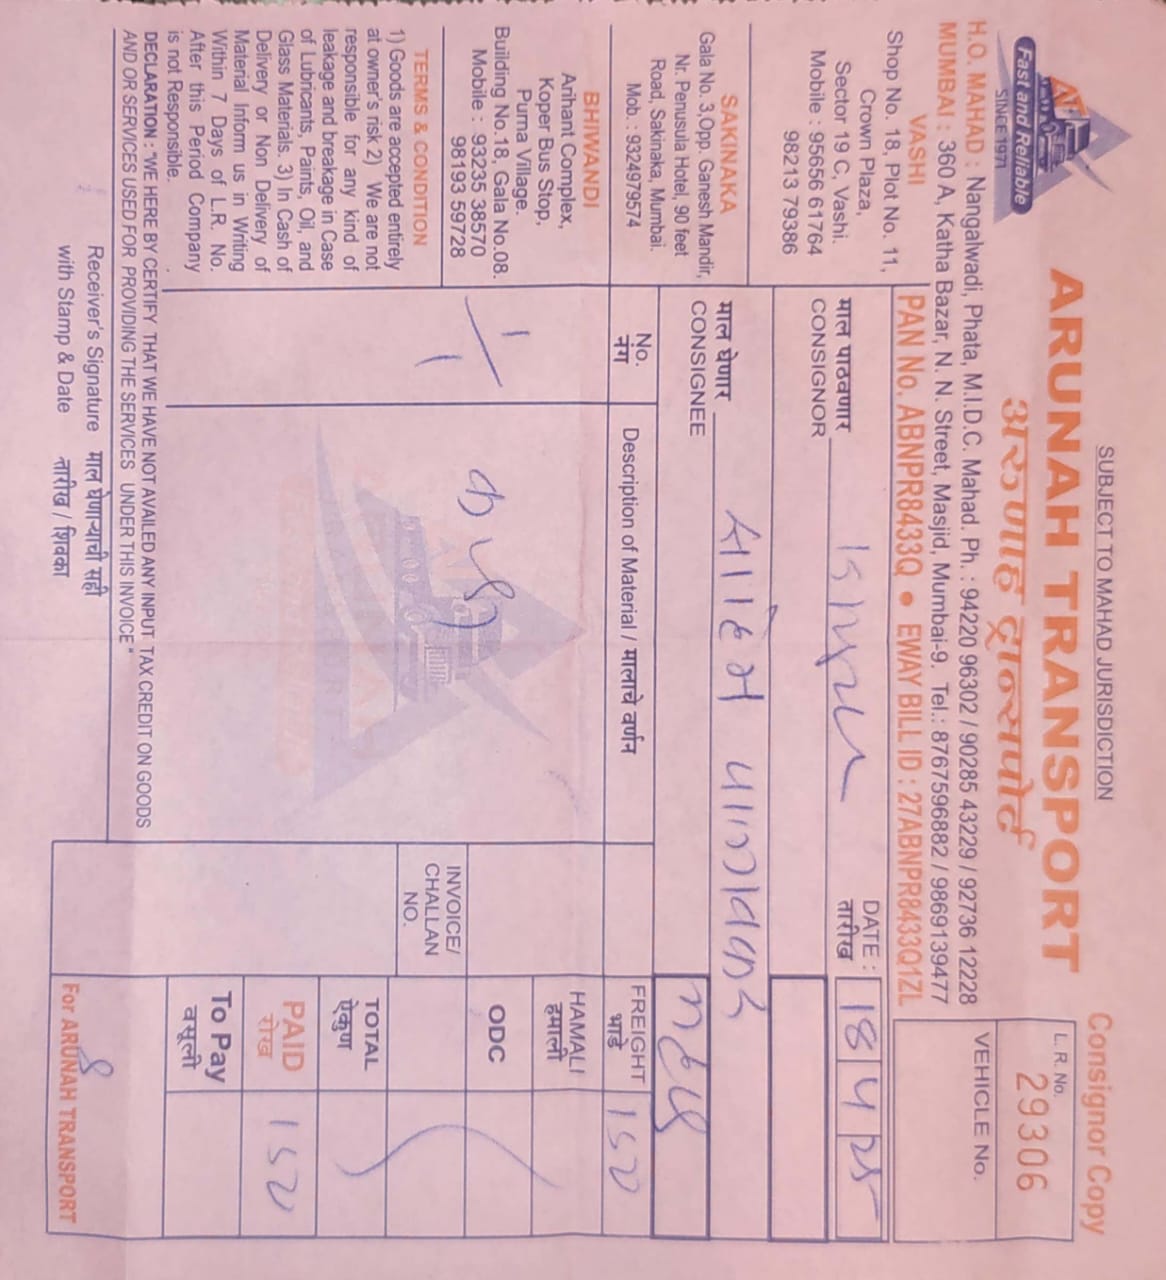 SUBJECT TO MAHAD JURISDICTION
Consignor Copy
Fast and Reliable
SINCE 1971
ARUNAH TRANSPORT
अरुणाह ट्रान्सपोर्ट
L. R. No.
29306
H.O. MAHAD : Nangalwadi, Phata, M.I.D.C. Mahad. Ph. : 94220 96302 / 90285 43229 / 92736 12228
MUMBAI : 360 A, Katha Bazar, N. N. Street, Masjid, Mumbai-9. Tel.: 8767596882 / 9869139477
VEHICLE No.
PAN No. ABNPR8433Q ● EWAY BILL ID : 27ABNPR8433Q1ZL
VASHI
Shop No. 18, Plot No. 11,
Crown Plaza,
Sector 19 C, Vashi.
Mobile : 95656 61764
98213 79386
माल पाठवणार
CONSIGNOR
DATE :
तारीख
18 4 25
SAKINAKA
Gala No. 3,Opp. Ganesh Mandir,
Nr. Penusula Hotel, 90 feet
Road, Sakinaka, Mumbai.
Mob. : 9324979574
माल घेणार
CONSIGNEE
No.
नंग
Description of Material / मालाचे वर्णन
FREIGHT
भाडे
150
BHIWANDI
Arihant Complex,
Koper Bus Stop,
Purna Village.
Building No.18, Gala No.08.
Mobile : 93235 38570
98193 59728
1/1
HAMALI
हमाली
ODC
INVOICE/
CHALLAN
NO.
TOTAL
ऐकुण
PAID
रोख
150
To Pay
वसूली
TERMS & CONDITION
1) Goods are accepted entirely
at owner's risk 2) We are not
responsible for any kind of
leakage and breakage in Case
of Lubricants, Paints, Oil, and
Glass Materials. 3) In Cash of
Delivery or Non Delivery of
Material Inform us in Writing
Within 7 Days of L.R. No.
After this Period Company
is not Responsible.
DECLARATION : "WE HERE BY CERTIFY THAT WE HAVE NOT AVAILED ANY INPUT TAX CREDIT ON GOODS
AND OR SERVICES USED FOR PROVIDING THE SERVICES UNDER THIS INVOICE"
Receiver's Signature माल घेणाऱ्याची सही
with Stamp & Date तारीख / शिक्का
For ARUNAH TRANSPORT